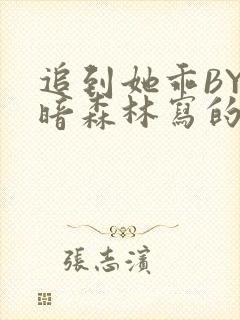 追到她乖BY
暗森林寫的
張志濱